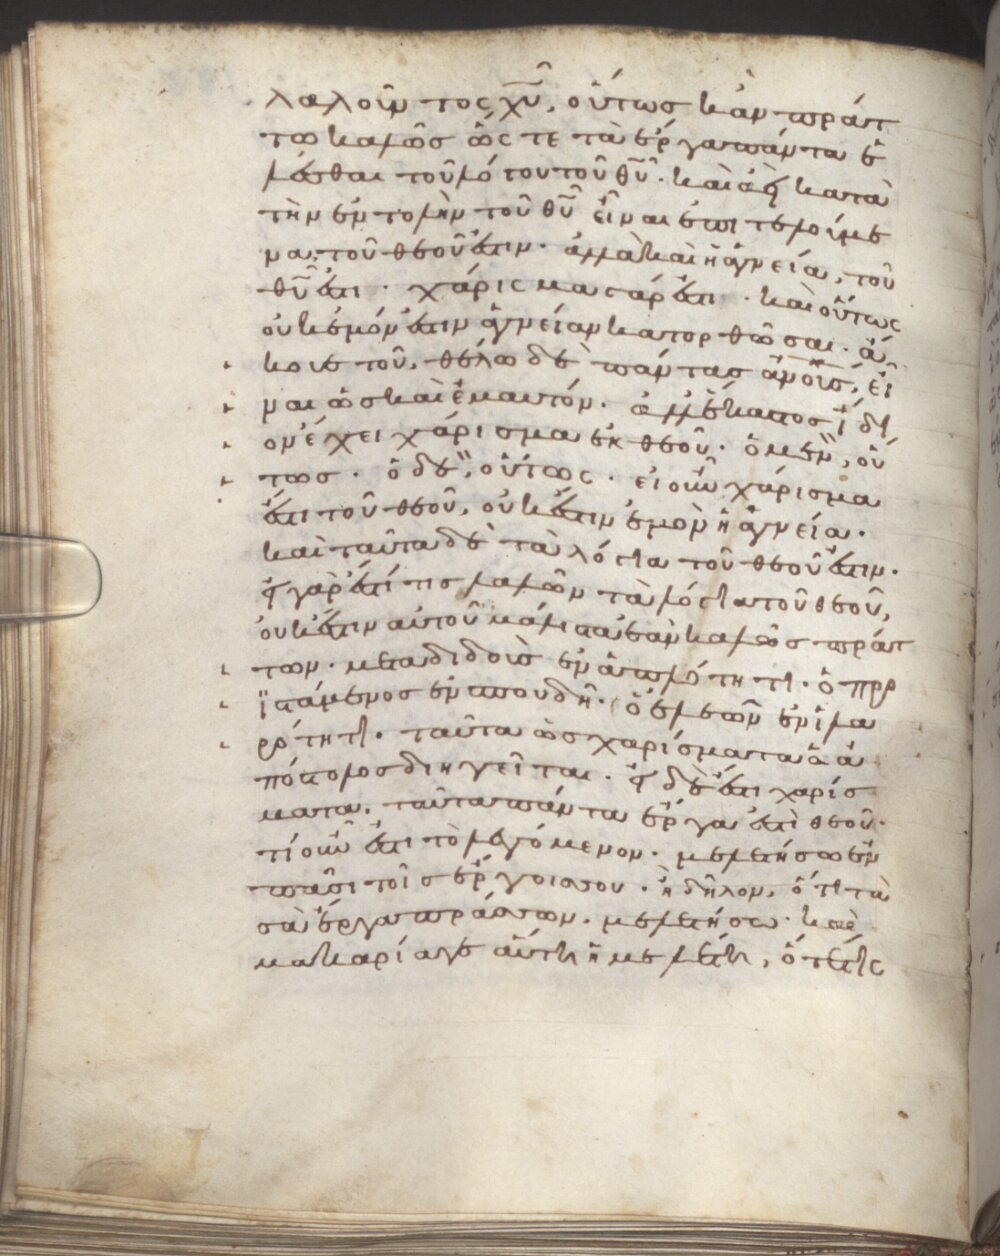 λαλοῦντος χῦ, οὕτως κἂν πράτ
τω καλῶς ὥς τε τὰ ἔργα πάντα ἐ
λέσθαι τοῦ λόγου τοῦ θῦ· καὶ κατὰ
τὴν ἐντολὴν τοῦ θῦ εἶναι ἐπιτελούμε
να, τοῦ θεοῦ ἐστιν· ἀλλὰ καὶ ἡ ἁγνεία, τοῦ
θῦ ἐστι· χάρισμα γάρ ἐστι· καὶ οὕτως
οὐκ ἐμόν ἐστιν ἁγνείαν κατορθῶσαι· ἄ
κουε τοῦ, θέλω δὲ πάντας ἀνοῦς, εἶ
ναι ὡς καὶ ἐμαυτόν· ἀλλ' ἕκαστος ἴδι
ον ἔχει χάρισμα ἐκ θεοῦ· ὁ μὲν, οὕ
τως· ὁ δὲ, οὕτως· εἰ οὖν χάρισμα
ἐστι τοῦ θεοῦ, οὐκ ἔστιν ἐμὸν ἡ ἁγνεία·
καὶ ταῦτα δὲ τὰ λόγια τοῦ θεοῦ ἐστιν·
εἰ γάρ ἐστί τις λαλῶν τὰ λόγια τοῦ θεοῦ,
οὐκ ἔστιν αὐτοῦ κἂν πράτ
των· μεταδιδοὺς ἐν ἁπλότητι· ὁ προ
ϊστάμενος ἐν σπουδῆ· ὁ ἐλεῶν ἐν ἱλα
ρότητι· ταῦτα ὡς χαρίσματα ὁ ἀ
πόστολος διηγεῖται· εἰ δέ ἐστι χαρίσ
ματα, ταῦτα πάντα ἔργα ἐστὶ θεοῦ·
τί οὖν ἐστι τὸ λεγόμενον· μελετήσω ἐν
πᾶσι τοῖς ἔργοις σου· ἢ δῆλον, ὅτι τὰ
σὰ ἔργα πράττων, μελετήσω· καὶ
μακαρία γε αὕτη ἡ μελέτη, ὅτε τις